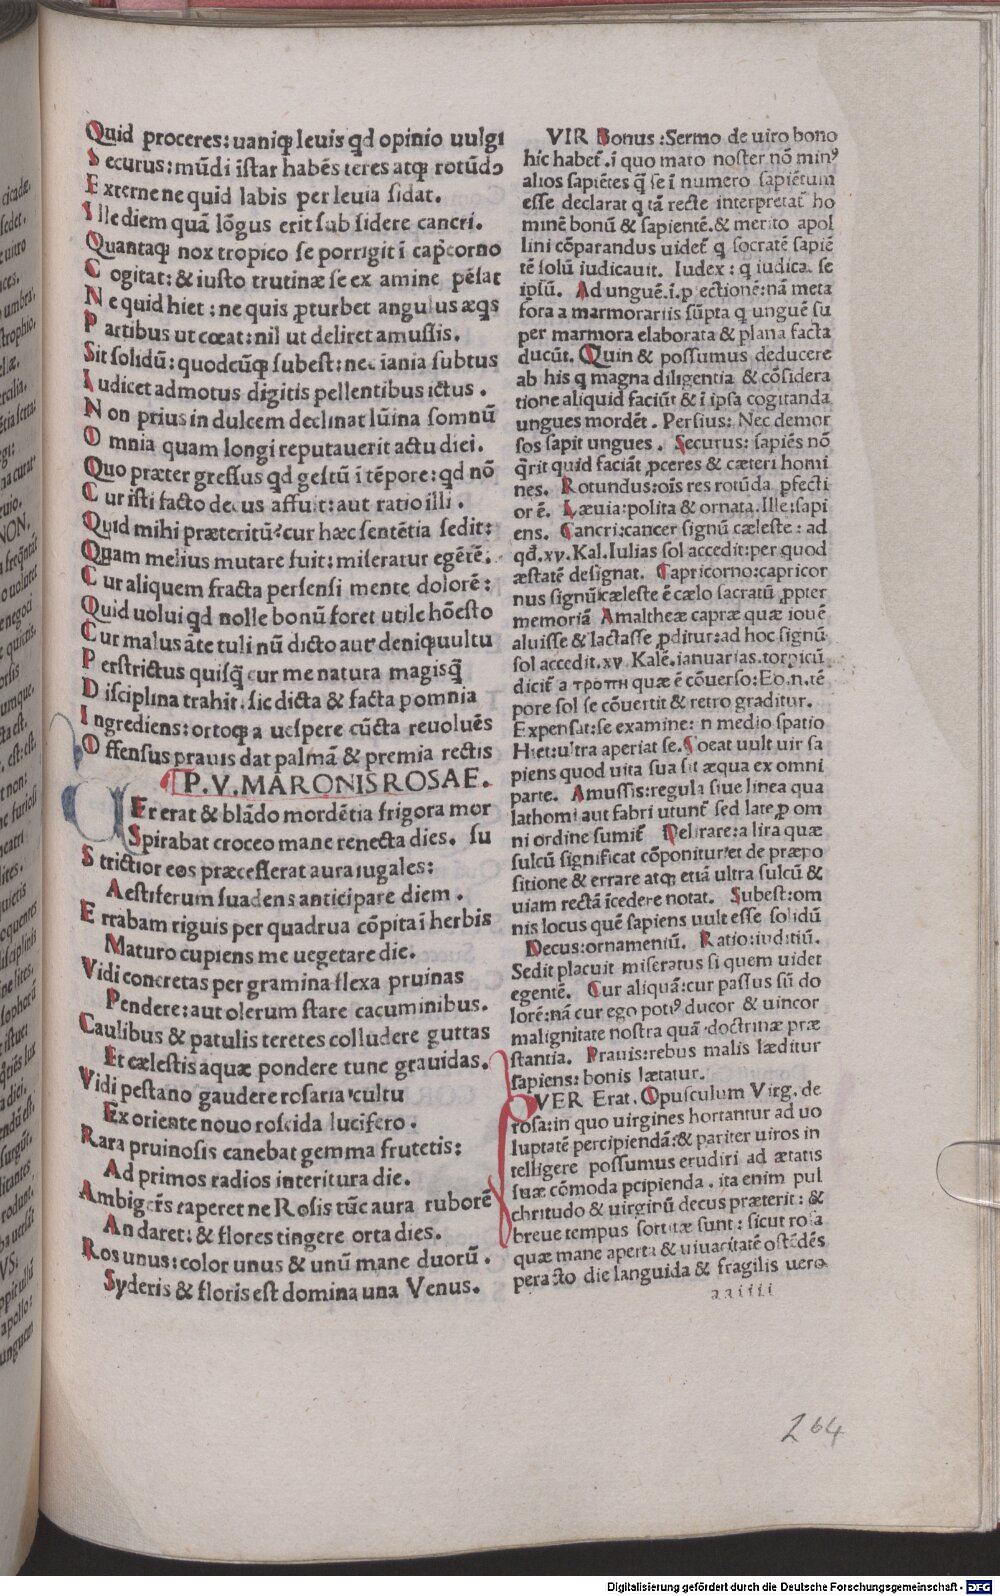 Quid proceres: uaniq; leuis qd opinio uulgi
Securus: mūdi īstar habēs teres atq; rotūdo
Externe ne quid labis per leuia sidat.
Ille diem quā lōgus erit sub sidere cancri.
Quantaq; nox tropico se porrigit ī cap̄corno
Cogitat: & iusto trutinæ se ex amine pēsat
Ne quid hiet: ne quis ꝓturbet angulus æq̄s
Partibus ut cœat: nil ut deliret amussis.
Sit solidū: quodcūq; subest: nec iania subtus
Iudicet admotus digitis pellentibus ictus.
Non prius in dulcem declinat lūina somnū
Omnia quam longi reputauerit actu diei.
Quo præter gressus qd gestū ī tēpore: qd nō
Cur isti facto decus affuit: aut ratio illi.
Quid mihi præteritū? cur hæc sentētia sedit:
Quam melius mutare fuit: miseratur egētē.
Cur aliquem fracta persensi mente dolorē:
Quid uolui qd nolle bonū foret utile hōesto
Cur malus āte tuli nū dicto aut deniq; uultu
Perstrictus quisq̄ cur me natura magisq̄
Disciplina trahit. sic dicta & facta p omnia
Ingrediens: ortoq; a uespere cūcta reuoluēs
Offensus prauis dat palmā & premia rectis
P. V. MARONIS ROSAE.
VEr erat & blādo mordētia frigora mor
Spirabat croceo mane reuecta dies. su
Strictior eos præcesserat aura iugales:
Aestiferum suadens anticipare diem.
Errabam riguis per quadrua cōpita ī herbis
Maturo cupiens me uegetare die.
Vidi concretas per gramina flexa pruinas
Pendere: aut olerum stare cacuminibus.
Caulibus & patulis teretes colludere guttas
Et cælestis aquæ pondere tunc grauidas.
Vidi pestano gaudere rosaria cultu
Exoriente nouo roscida lucifero.
Rara pruinosis canebat gemma frutetis:
Ad primos radios interitura die.
Ambiger̄s raperet ne Rosis tūc aura ruborē
An daret: & flores tingere orta dies.
Ros unus: color unus & unū mane duorū.
Syderis & floris est domina una Venus.
VIR Bonus: Sermo de uiro bono
hic habet̄. ī quo maro noster nō minꝰ
alios sapiētes q̄ se ī numero sapiētum
esse declarat q tā recte interpretat̄ ho
minē bonū & sapientē. & merito apol
lini cōparandus uidet̄ q socratē sapiē
tē solū iudicauit. Iudex: q iudica. se
ipsū. Ad unguē. i. p ectionē: nā meta
fora a marmorariis sūpta q unguē su
per marmora elaborata & plana facta
ducūt. Quin & possumus deducere
ab his q magna diligentia & cōsidera
tione aliquid faciūt & ī ipsa cogitanda
ungues mordēt. Persius: Nec demor
sos sapit ungues. Securus: sapiēs nō
q̄rit quid faciāt ꝓceres & cæteri homi
nes. Rotundus: oīs res rotūda ꝑfecti
or ē. Læuia: polita & ornata. Ille: sapi
ens. Cancri: cancer signū cæleste: ad
qd̄. xv. Kal. Iulias sol accedit: per quod
æstatē designat. Capricorno: capricor
nus signū cæleste ē cælo sacratū ꝓpter
memoriā Amaltheæ capræ quæ iouē
aluisse & lactasse ꝓditur: ad hoc signū
sol accedit. xv. Kalē. ianuarias. torpicū
dicit̄ a τροπη quæ ē cōuerso: Eo. n. tē
pore sol se cōuertit & retro graditur.
Expensat: se examine: n medio spatio
Hiet: ultra aperiat se. Coeat uult uir sa
piens quod uita sua sit æqua ex omni
parte. Amussis: regula siue linea qua
lathomi aut fabri utunt̄ sed late ꝓ om
ni ordine sumit̄ Delirare: a lira quæ
sulcū significat cōponitur: et de præpo
sitione & errare atq; etiā ultra sulcū &
uiam rectā īcedere notat. Subest: om
nis locus quē sapiens uult esse solidū
Decus: ornamentū. Ratio: iuditiū.
Sedit placuit miseratus si quem uidet
egentē. Cur aliquā: cur passus sū do
lorē: nā cur ego potiꝰ ducor & uincor
malignitate nostra quā doctrinæ præ
stantia. Prauis: rebus malis læditur
sapiens: bonis lætatur.
VER Erat. Opusculum Virg. de
rosa: in quo uirgines hortantur ad uo
luptatē percipiendā: & pariter uiros in
telligere possumus erudiri ad ætatis
suæ cōmoda ꝑcipienda. ita enim pul
chritudo & uirginū decus præterit: &
breue tempus sortitæ sunt: sicut rosa
quæ mane aperta & uiuacitatē ostēdēs
peracto die languida & fragilis uero
aaiiii
264
Digitalisierung gefördert durch die Deutsche Forschungsgemeinschaft - DFG